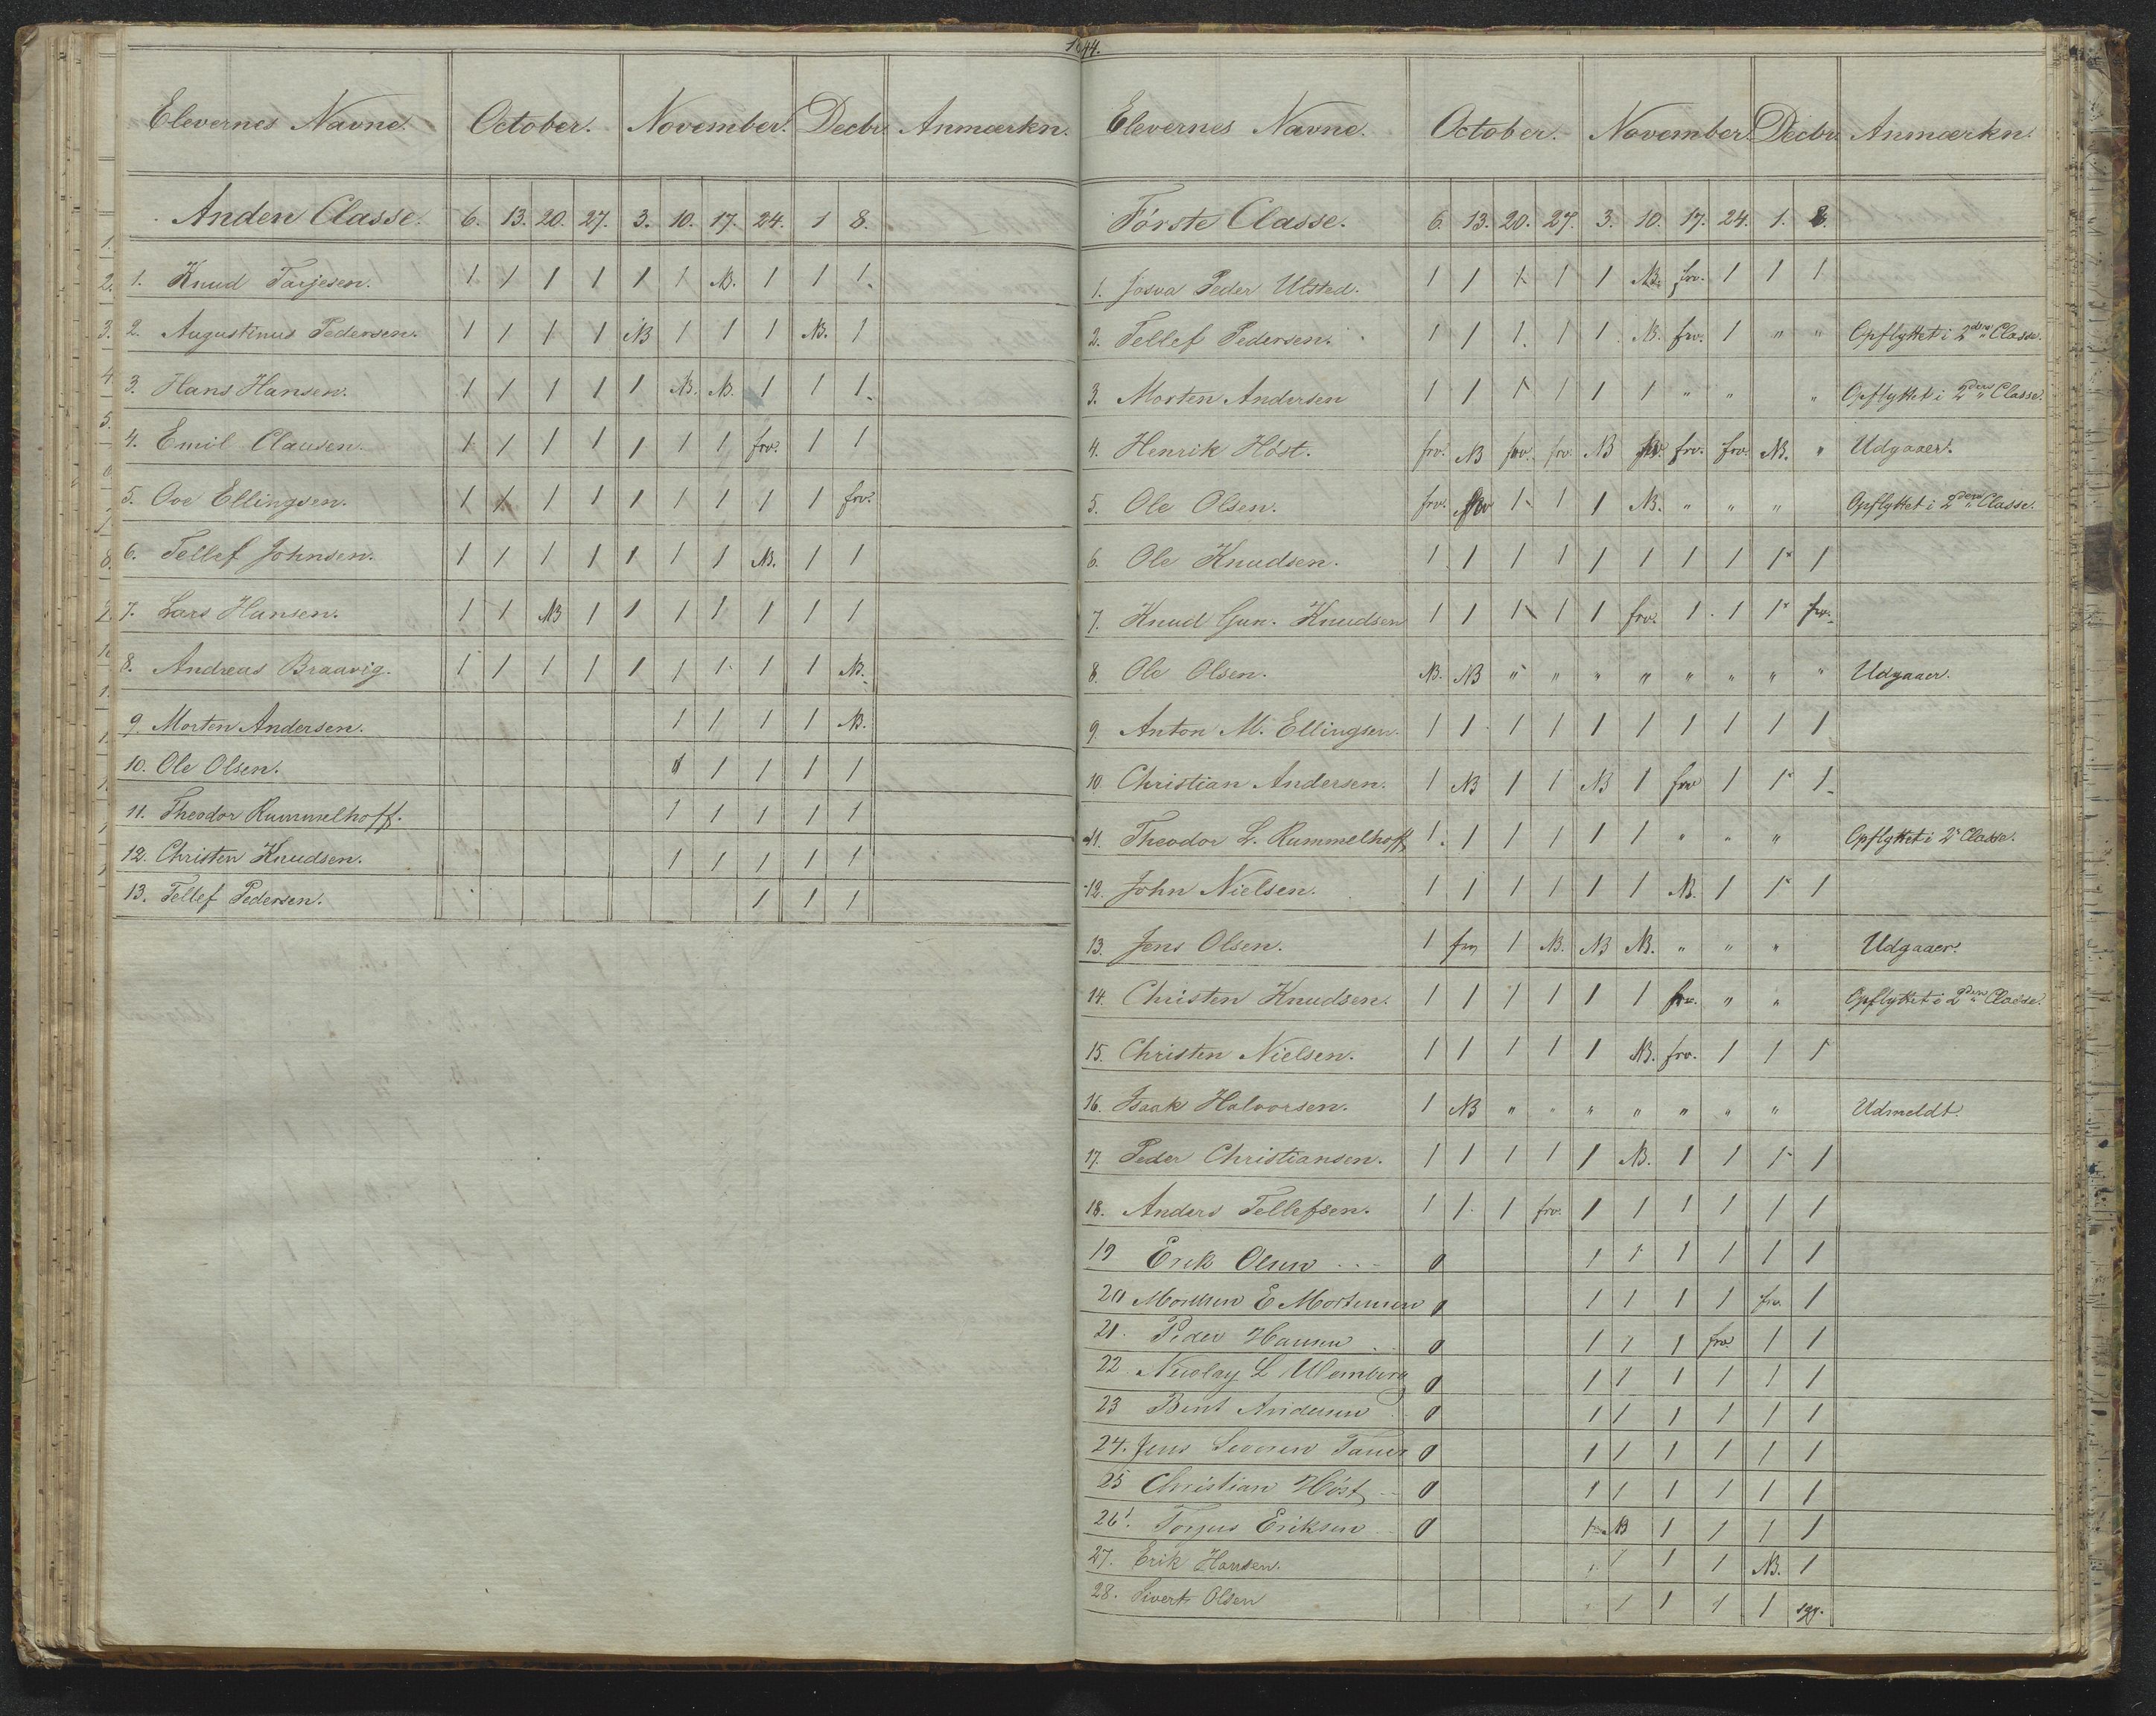 1844.
Elevernes Navne. October. November. Decbr Anmærkn.
Anden Classe. 6. 13. 20. 27. 3. 10. 17. 24. 1 8.
1. Knud Tarjesen. 1 1 1 1 1 1 NB. 1 1 1
2. Augustinus Pedersen. 1 1 1 1 NB 1 1 1 NB. 1
3. Hans Hansen. 1 1 1 1 1 NB. NB. 1 1 1
4. Emil Clausen. 1 1 1 1 1 1 1 frv. 1 1
5. Ove Ellingsen. 1 1 1 1 1 1 1 1 1 frv.
6. Tellef Johnsen. 1 1 1 1 1 1 1 NB. 1 1
7. Lars Hansen. 1 1 NB 1 1 1 1 1 1 1
8. Andreas Braavig. 1 1 1 1 1 1 1 1 1 NB.
9. Morten Andersen. 1 1 1 1 NB.
10. Ole Olsen. 1 1 1 1 1
11. Theodor Rummelhoff. 1 1 1 1 1
12. Christen Knudsen. 1 1 1 1 1
13. Tellef Pedersen. 1 1 1
Elevernes Navne. October. November. Decbr. Anmærkn.
Første Classe. 6. 13. 20. 27. 3. 10. 17. 24. 1. 8.
1. Josva Peder Ulsted. 1 1 1 1 1 NB. frv. 1 1 1
2. Tellef Pedersen. 1 1 1 1 1 NB. frv. 1 " " Opflyttet i 2den Classe.
3. Morten Andersen 1 1 1 1 1 1 " " " Opflyttet i 2den Classe.
4. Henrik Høst. frv. NB frv. frv. NB frv. frv. frv. NB. " Udgaaer.
5. Ole Olsen. frv. frv 1 1 1 NB. " " " Opflyttet i 2den Classe.
6. Ole Knudsen. 1 1 1 1 1 1 1 1 1 1
7. Knud Gun. Knudsen 1 1 1 1 1 frv. 1 1 1 frv.
8. Ole Olsen. NB. NB " " " " " " " " Udgaaer.
9. Anton M. Ellingsen. 1 1 1 1 1 1 1 1 1 1
10. Christian Andersen. 1 NB 1 1 NB 1 frv 1 1 1
11. Theodor L. Rummelhoff 1 1 1 1 1 1 " " " Opflyttet i 2 Classe.
12. John Nielsen. 1 1 1 1 1 1 NB. 1 1 1
13. Jens Olsen. 1 frv 1 NB. NB NB. " " " Udgaaer.
14. Christen Knudsen. 1 1 1 1 1 1 frv. " " Opflyttet i 2den Classe.
15. Christen Nielsen. 1 1 1 1 1 NB. frv. 1 1 1
16. Isaak Halvorsen. 1 NB " " " " " " " Udmeldt.
17. Peder Christiansen. 1 1 1 1 1 NB. 1 1 1 1
18. Anders Tellefsen. 1 1 1 frv. 1 1 1 1 1 1
19 Erik Olsen 0 1 1 1 1 1 1
20 Mortsen E Mortensen 0 1 1 1 1 frv. 1
21. Peder Hansen 0 1 1 1 frv 1 1
22 Nicolay L 0 1 1 1 1 1 1
23 Bent Andersen 0 1 1 1 1 1 1
24. Jens Severin 0 1 1 1 1 1 1
25 Christian Høst 0 1 1 1 1 1 1
26. Torjus Eriksen 0 1 NB 1 1 1 1
27. Erik Hansen. 1 1 1 1 NB. 1
28. Sivert Olsen 1 1 1 1